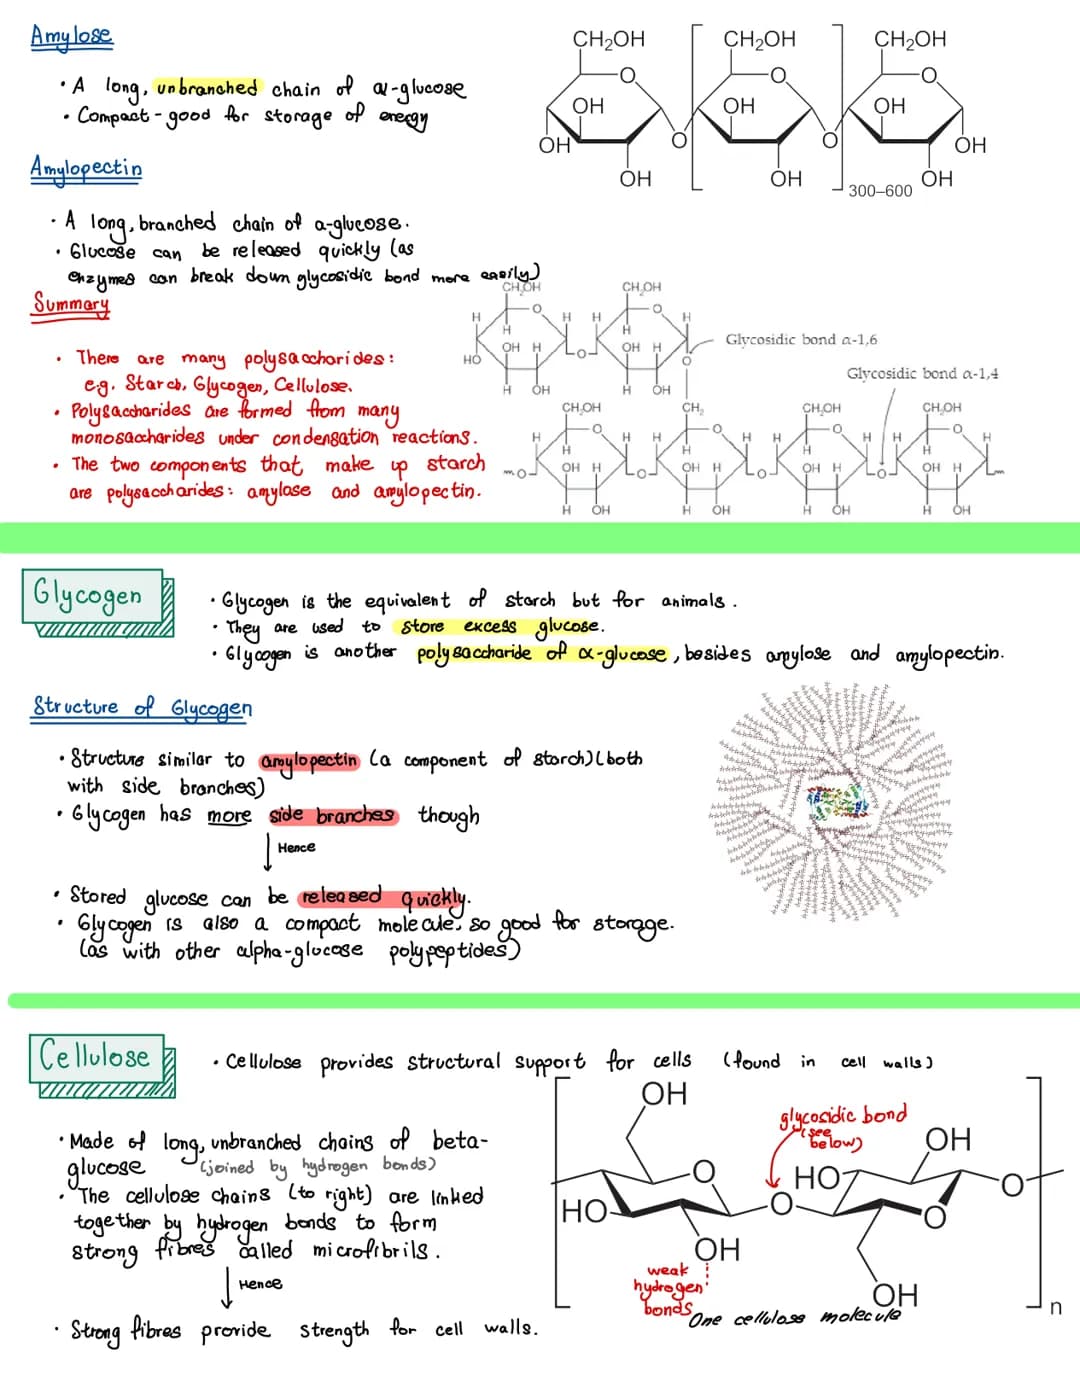 Amylose
• A long, unbranched chain of α-glucose
• Compact - good for storage of energy
Amylopectin
• A long, branched chain of α-glucose.
• Glucose can be released quickly (as
enzymes can break down glycosidic bond more easily)
Summary
• There are many polysaccharides:
e.g. Starch, Glycogen, Cellulose.
• Polysaccharides are formed from many
monosaccharides under condensation reactions.
• The two components that make up starch
are polysaccharides: amylose and amylopectin.
CH₂OH CH₂OH CH₂OH
O O O
OH OH OH
OH O O OH
OH OH OH
300–600
CH₂OH CH₂OH
O O
H H H H H
OH H OH H
HO O O
H OH H OH
Glycosidic bond α-1,6
Glycosidic bond α-1,4
CH₂OH CH₂ CH₂OH CH₂OH
O O O O
H H H H H H H H
H H H H
OH H OH H OH H OH H
O O O O
H OH H OH H OH H OH
Glycogen
• Glycogen is the equivalent of starch but for animals.
• They are used to store excess glucose.
• Glycogen is another polysaccharide of α-glucose, besides amylose and amylopectin.
Structure of Glycogen
• Structure similar to amylopectin (a component of starch)(both
with side branches)
• Glycogen has more side branches though
Hence
• Stored glucose can be released quickly.
• Glycogen is also a compact molecule, so good for storage.
(as with other alpha-glucose polypeptides)
Cellulose
• Cellulose provides structural support for cells (found in cell walls)
• Made of long, unbranched chains of beta-
glucose (joined by hydrogen bonds)
• The cellulose chains (to right) are linked
together by hydrogen bonds to form
strong fibres called microfibrils.
Hence
• Strong fibres provide strength for cell walls.
OH
glycosidic bond
(see
below)
OH
O HO O
HO O O
OH
weak
hydrogen
bonds
OH
n
One cellulose molecule